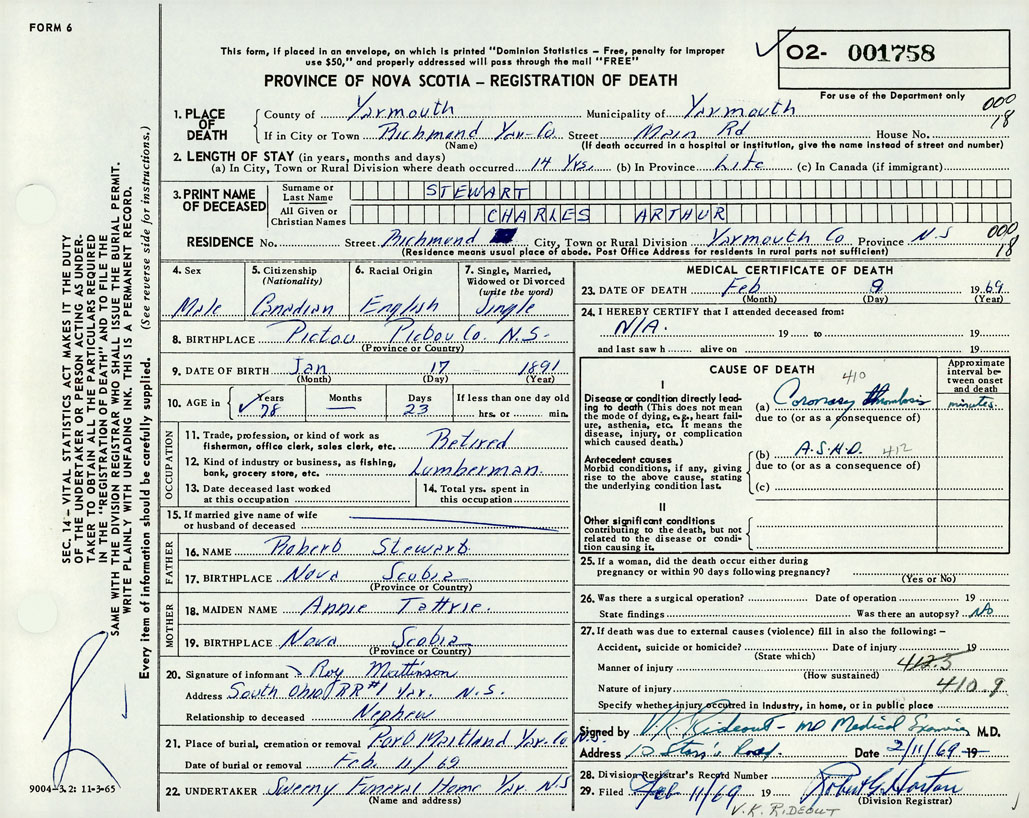 FORM 6
This form, if placed in an envelope, on which is printed "Dominion Statistics – Free, penalty for improper
use $50," and properly addressed will pass through the mail "FREE"
O2- 001758
For use of the Department only
PROVINCE OF NOVA SCOTIA – REGISTRATION OF DEATH
SEC. 14 – VITAL STATISTICS ACT MAKES IT THE DUTY
OF THE UNDERTAKER OR PERSON ACTING AS UNDER-
TAKER TO OBTAIN ALL THE PARTICULARS REQUIRED
IN THE "REGISTRATION OF DEATH" AND TO FILE THE
SAME WITH THE DIVISION REGISTRAR WHO SHALL ISSUE THE BURIAL PERMIT.
WRITE PLAINLY WITH UNFADING INK. THIS IS A PERMANENT RECORD.
Every item of information should be carefully supplied. (See reverse side for instructions.)
1. PLACE OF DEATH County of Yarmouth Municipality of Yarmouth 000 18
If in City or Town Richmond Yar-Co Street Main Rd House No.
(Name) (If death occurred in a hospital or institution, give the name instead of street and number)
2. LENGTH OF STAY (in years, months and days)
(a) In City, Town or Rural Division where death occurred 14 Yrs. (b) In Province Life (c) In Canada (if immigrant)
3. PRINT NAME OF DECEASED Surname or Last Name STEWART
All Given or Christian Names CHARLES ARTHUR
RESIDENCE No. Street Richmond City, Town or Rural Division Yarmouth Co Province N.S 000 18
(Residence means usual place of abode. Post Office Address for residents in rural parts not sufficient)
4. Sex Male
5. Citizenship (Nationality) Canadian
6. Racial Origin English
7. Single, Married, Widowed or Divorced (write the word) Single
8. BIRTHPLACE Pictou Pictou Co. N.S.
(Province or Country)
9. DATE OF BIRTH Jan 17 1891
(Month) (Day) (Year)
10. AGE in Years 78 Months — Days 23 If less than one day old hrs. or min.
OCCUPATION
11. Trade, profession, or kind of work as fisherman, office clerk, sales clerk, etc. Retired
12. Kind of industry or business, as fishing, bank, grocery store, etc. Lumberman
13. Date deceased last worked at this occupation
14. Total yrs. spent in this occupation
15. If married give name of wife or husband of deceased
FATHER
16. NAME Robert Stewart
17. BIRTHPLACE Nova Scotia
(Province or Country)
MOTHER
18. MAIDEN NAME Annie Tattrie.
19. BIRTHPLACE Nova Scotia
(Province or Country)
20. Signature of informant Roy Mattinson
Address South Ohio RR #1 Yar. N.S.
Relationship to deceased Nephew
21. Place of burial, cremation or removal Port Maitland Yar. Co N.S.
Date of burial or removal Feb 11/69
22. UNDERTAKER Sweeny Funeral Home Yar. N.S
(Name and address)
9004-3.2: 11-3-65
MEDICAL CERTIFICATE OF DEATH
23. DATE OF DEATH Feb 9 1969
(Month) (Day) (Year)
24. I HEREBY CERTIFY that I attended deceased from:
N/A. 19 to 19
and last saw h alive on 19
CAUSE OF DEATH
Approximate interval between onset and death
I
410
Disease or condition directly leading to death (This does not mean the mode of dying, e.g., heart failure, asthenia, etc. It means the disease, injury, or complication which caused death.)
(a) Coronary thrombosis minutes.
due to (or as a consequence of)
Antecedent causes
Morbid conditions, if any, giving rise to the above cause, stating the underlying condition last.
(b) A.S.H.D. 412
due to (or as a consequence of)
(c)
II
Other significant conditions contributing to the death, but not related to the disease or condition causing it.
25. If a woman, did the death occur either during pregnancy or within 90 days following pregnancy?
(Yes or No)
26. Was there a surgical operation? Date of operation 19
State findings Was there an autopsy? No
27. If death was due to external causes (violence) fill in also the following: –
Accident, suicide or homicide? Date of injury 19
(State which)
Manner of injury 412.3
(How sustained)
Nature of injury 410.9
Specify whether injury occurred in industry, in home, or in public place
Signed by V.K. Rideout - MD Medical Examiner M.D.
Address Road. Date 2/11/69 19
28. Division Registrar's Record Number
29. Filed Feb 11/69 19 Robert G Horton
(Division Registrar)
V.K. RIDEOUT